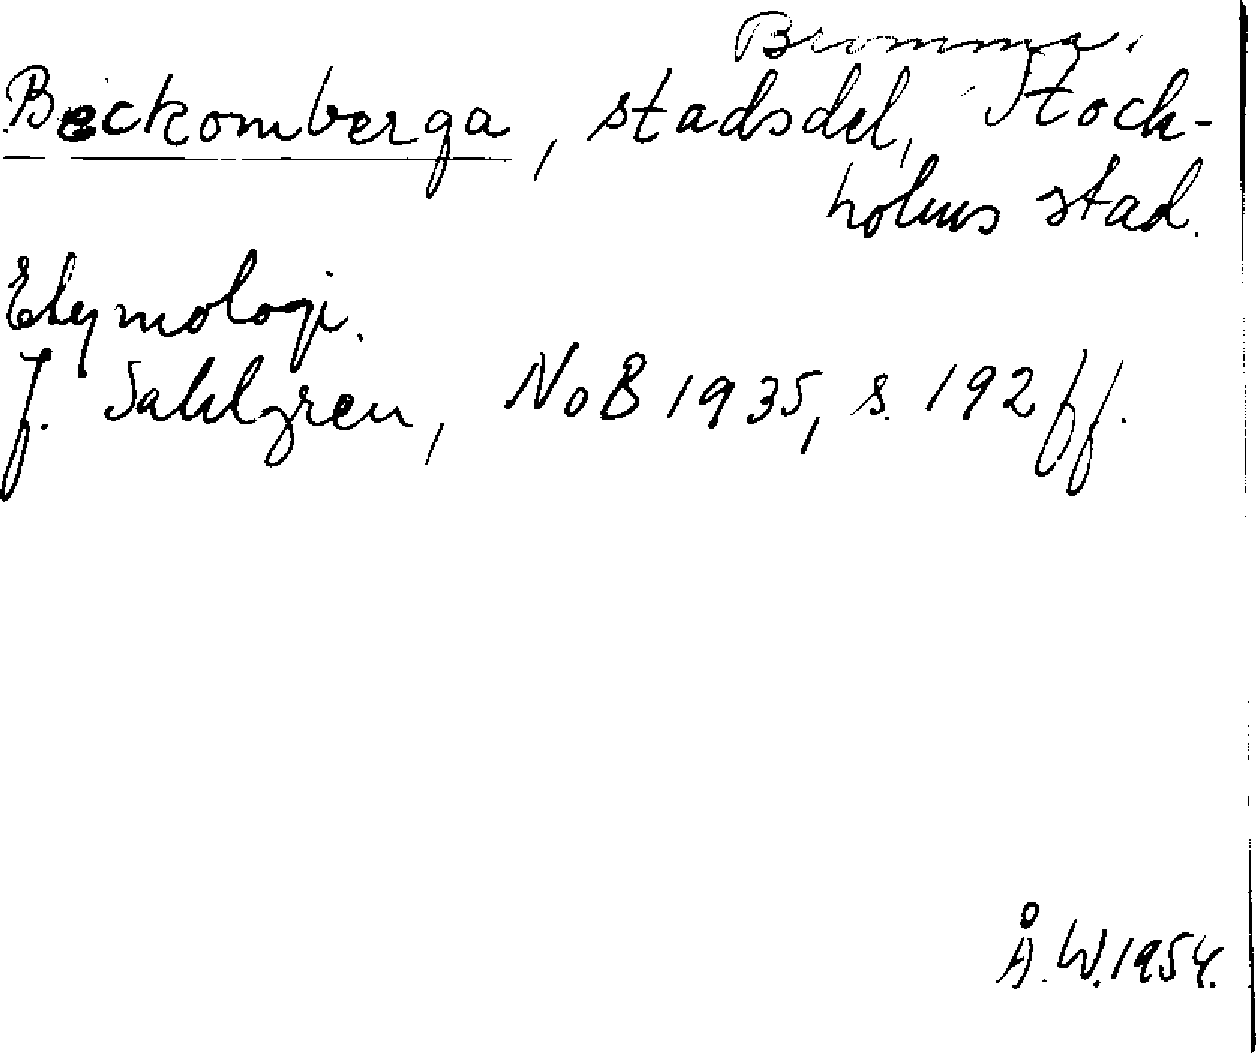 Bromma.
Beckomberga, stadsdel, Stock-
holms stad.
Etymologi.
J. Sahlgren, NoB 1935, s. 192 ff.
Å. W. 1954.